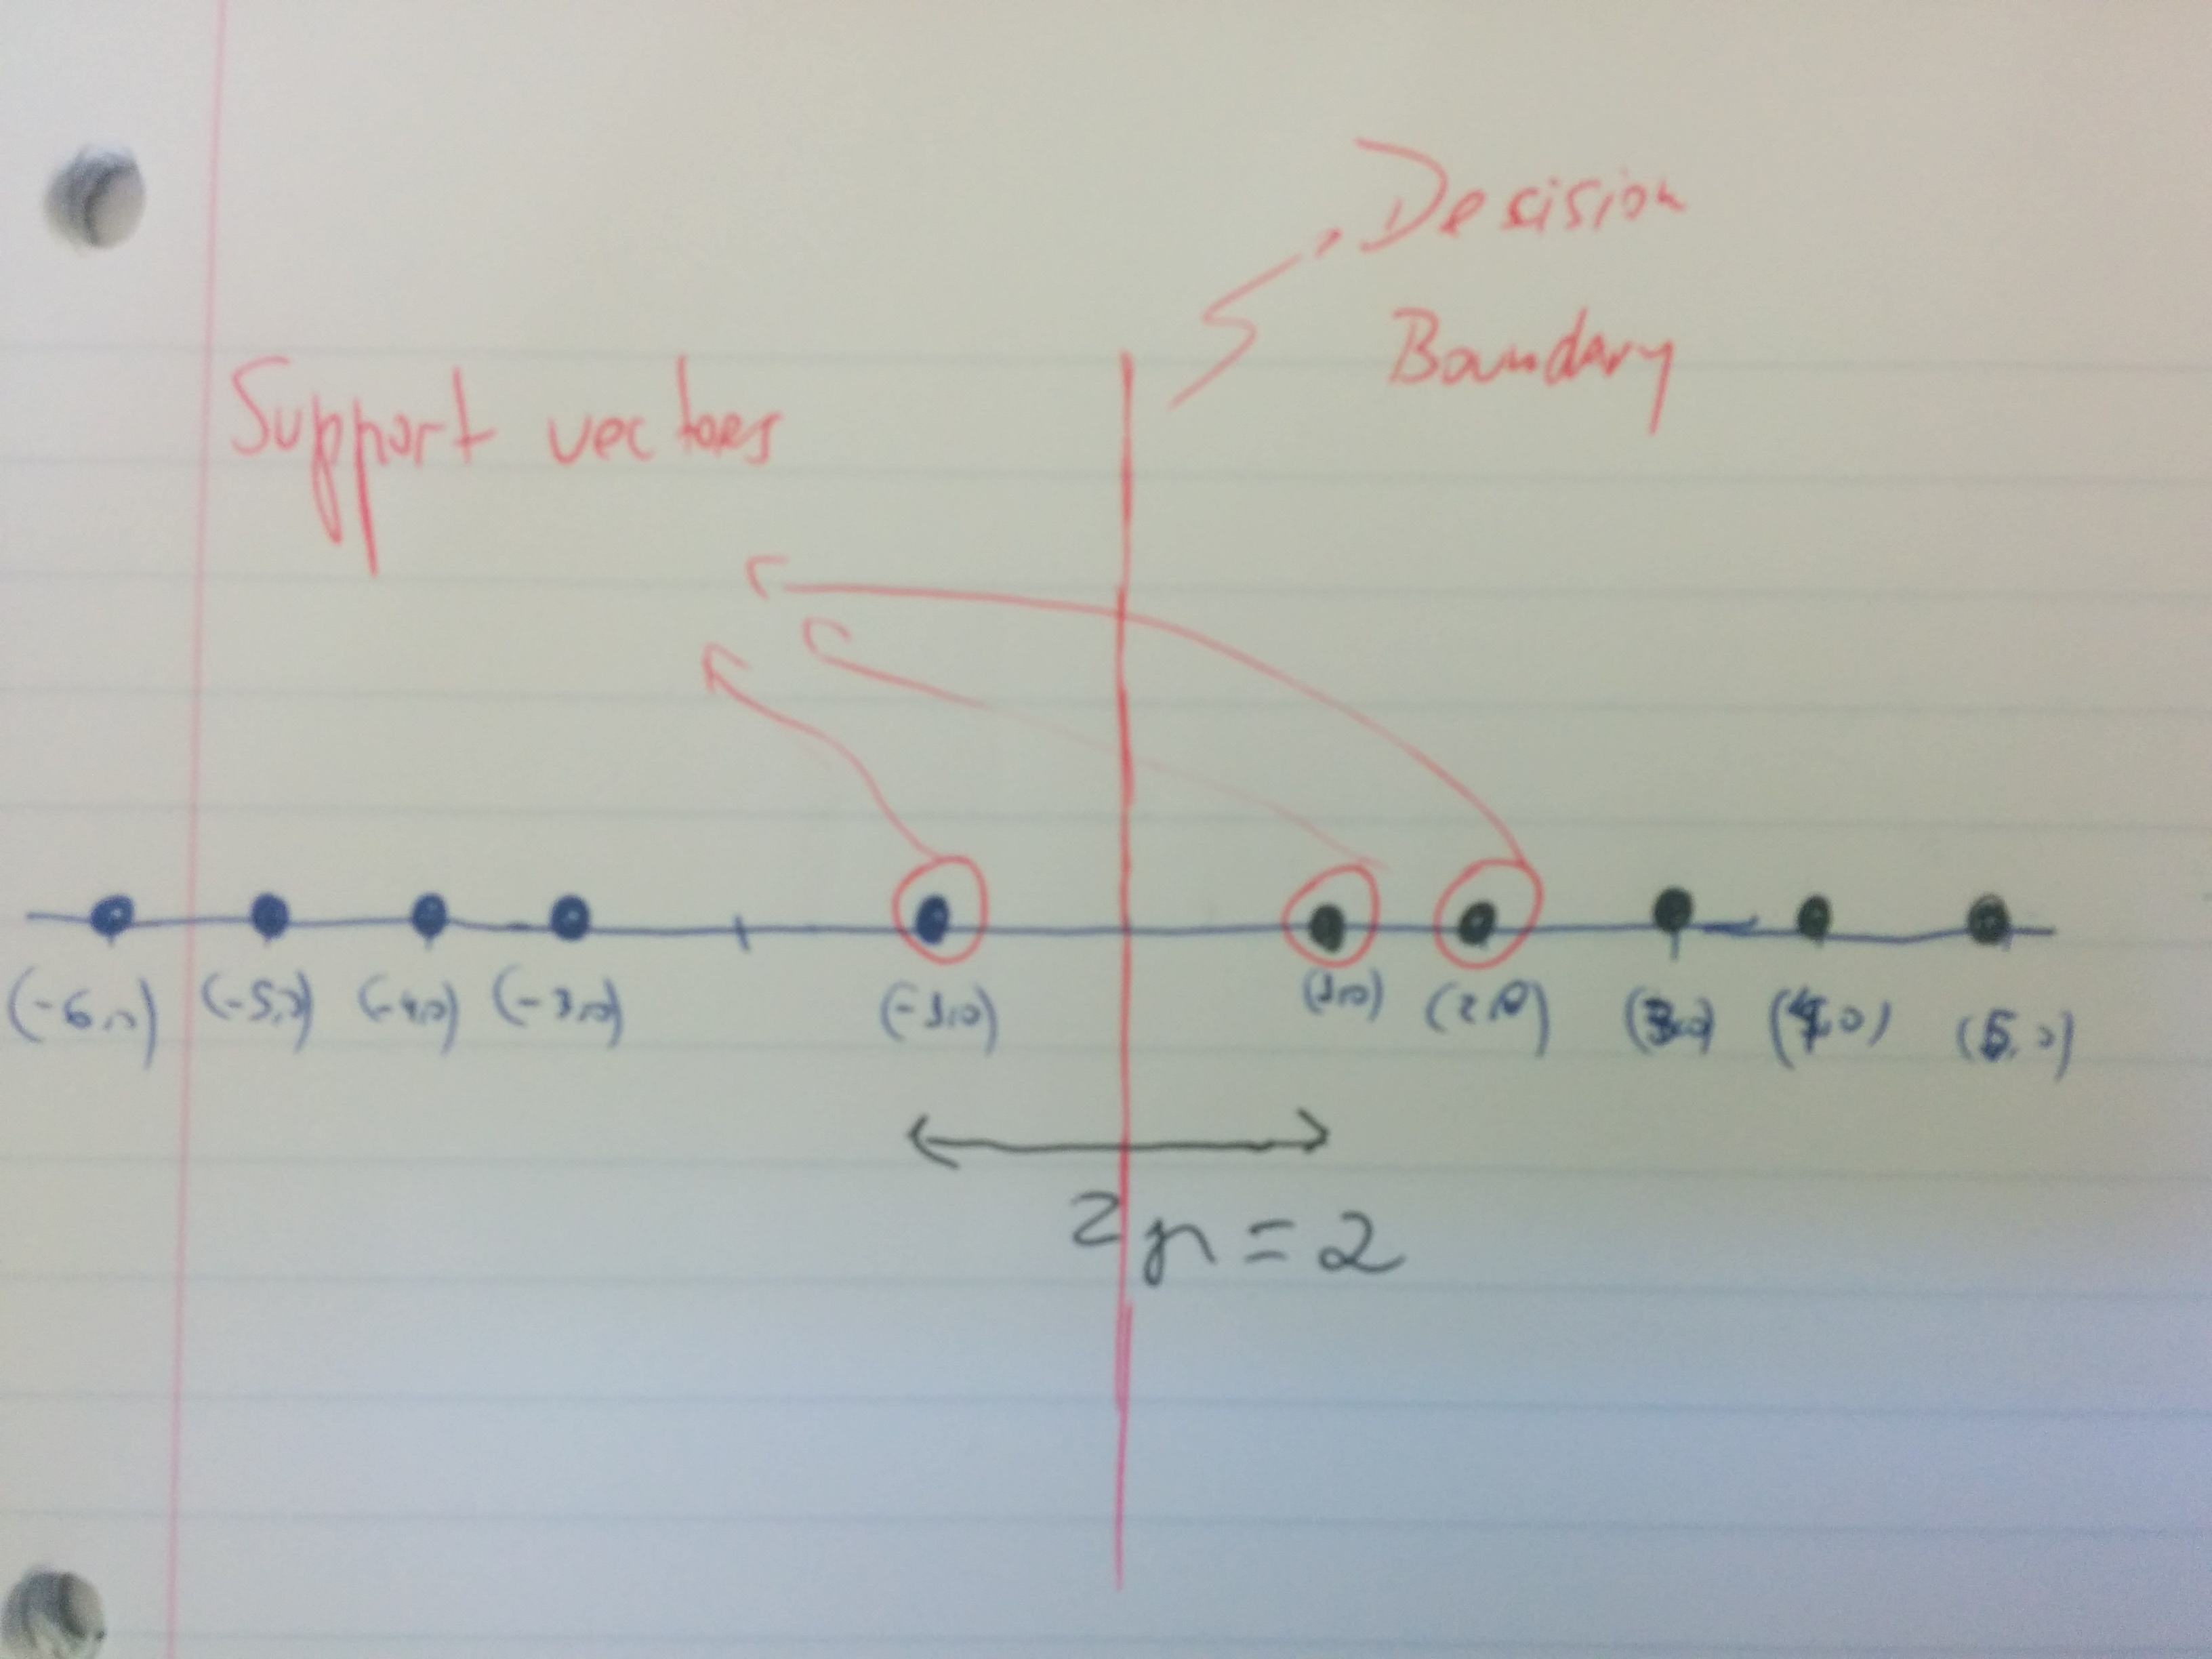 Decision
Boundary
Support vectors
(-6,0) (-5,0) (-4,0) (-3,0) (-1,0) (1,0) (2,0) (3,0) (4,0) (5,0)
= 2